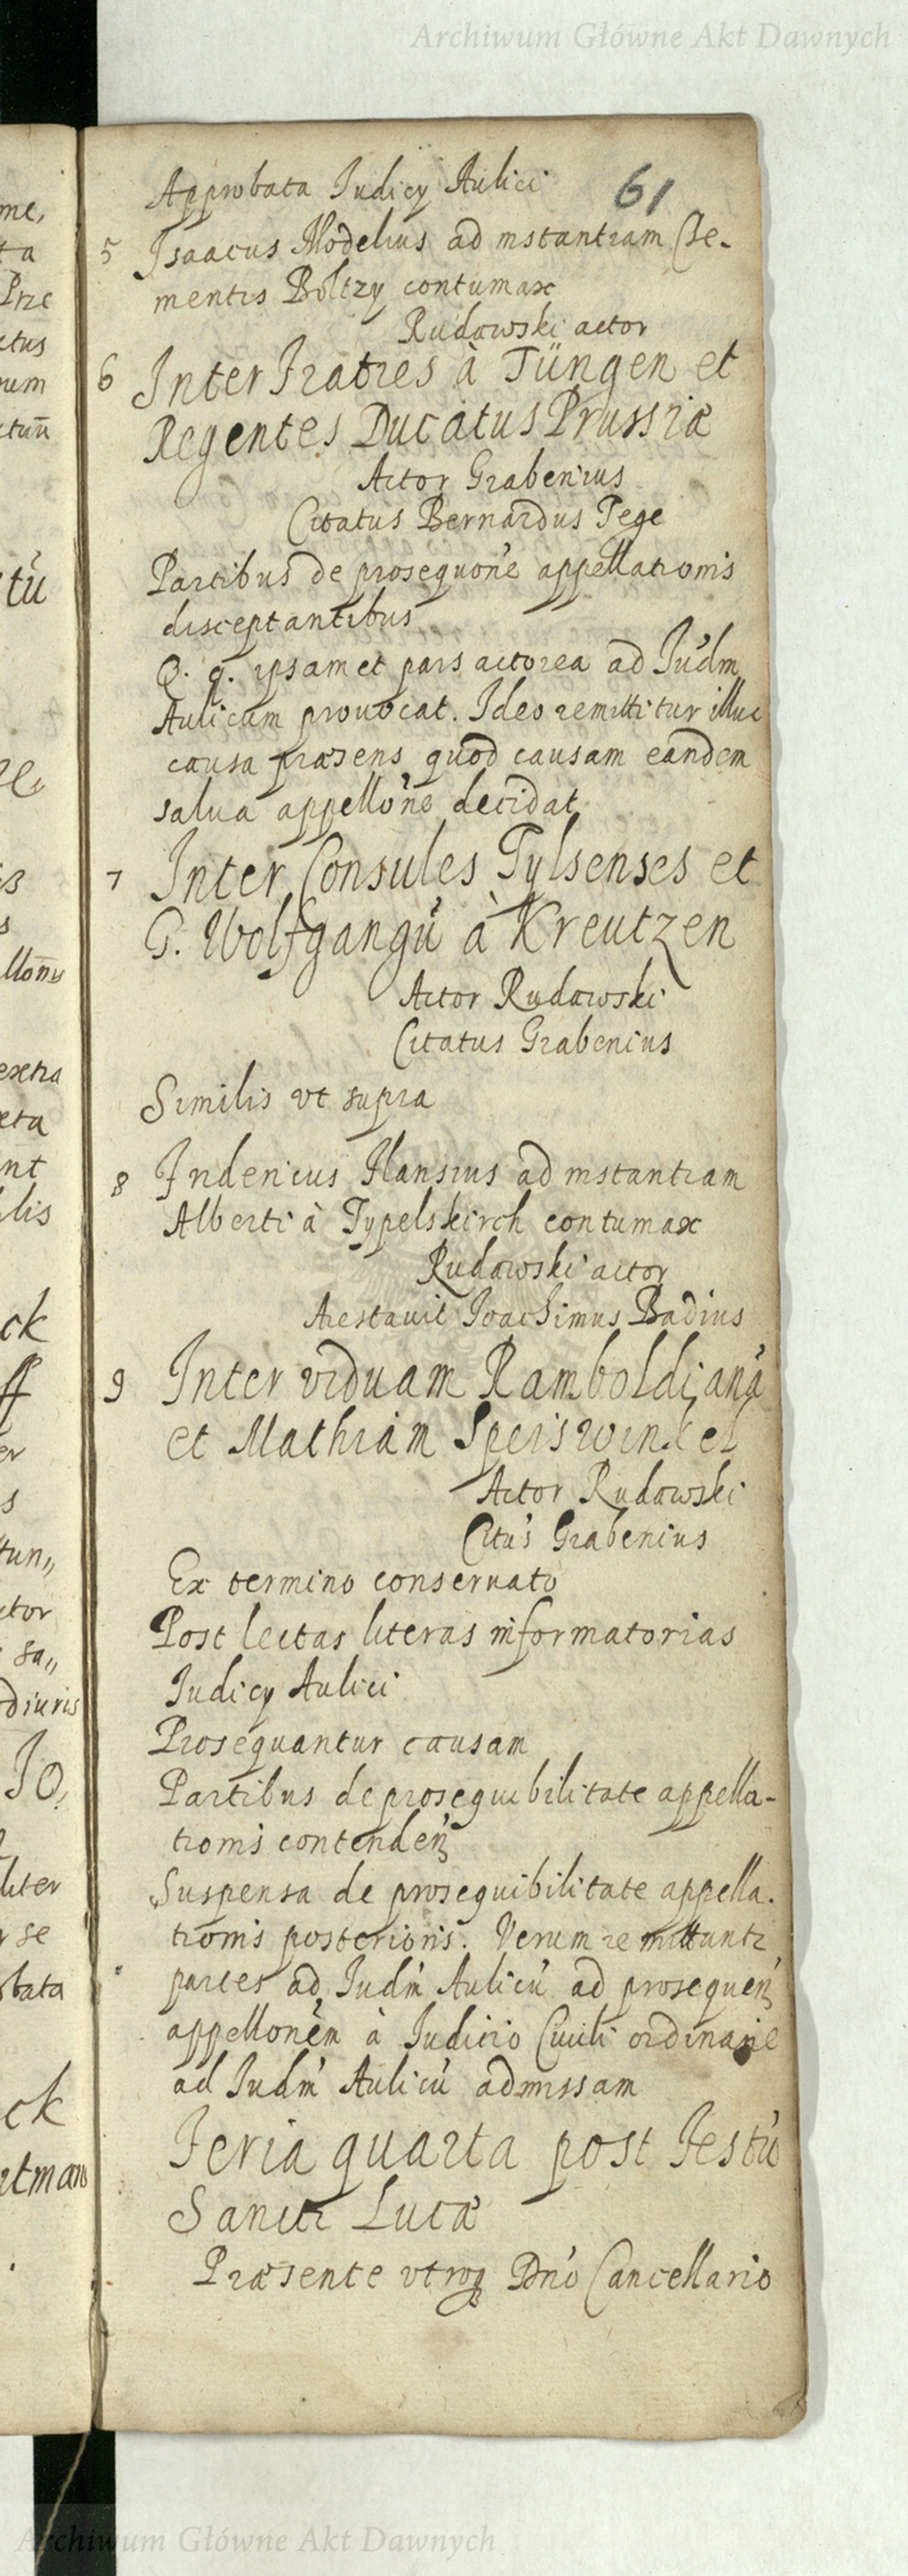 Archiwum Główne Akt Dawnych
61
Approbata Iudicy Aulici
5 Isaacus Modelius ad instantiam Cle-
mentis Boltzy contumax
Rudawski actor
6 Inter Fratres à Tüngen et
Regentes Ducatus Prussiæ
Actor Grabenius
Citatus Bernardus Tege
Partibus de prosequōne appellationis
disceptantibus
Q. q. ipsamet pars actorea ad Iudm
Aulicum prouocat. Ideo remittitur illuc
causa præsens quod causam eandem
salua appellōne decidat
7 Inter Consules Tylsenses et
G. Wolfgangū à Kreutzen
Actor Rudawski
Citatus Grabenius
Similis vt supra
8 Hansius ad instantiam
Alberti à Typelskirch contumax
Rudawski actor
Arestauit Ioachimus Badius
9 Inter viduam Ramboldianā
et Mathiam Speiswinkel
Actor Rudawski
Citūs Grabenius
Ex termino conseruato
Post lectas literas informatorias
Iudicy Aulici
Prosequantur causam
Partibus de prosequibilitate appella-
tionis contendeñ
Suspensa de prosequibilitate appella-
tionis posterioris. Verum remittuntr
partes ad Iudm Aulicū ad prosequeñ
appellonem à Iudicio Ciuili ordinarie
ad Iudm Aulicū admissam
Feria quarta post Festū
Sancti Lucæ
Præsente vtroq Dno Cancellario
Archiwum Główne Akt Dawnych